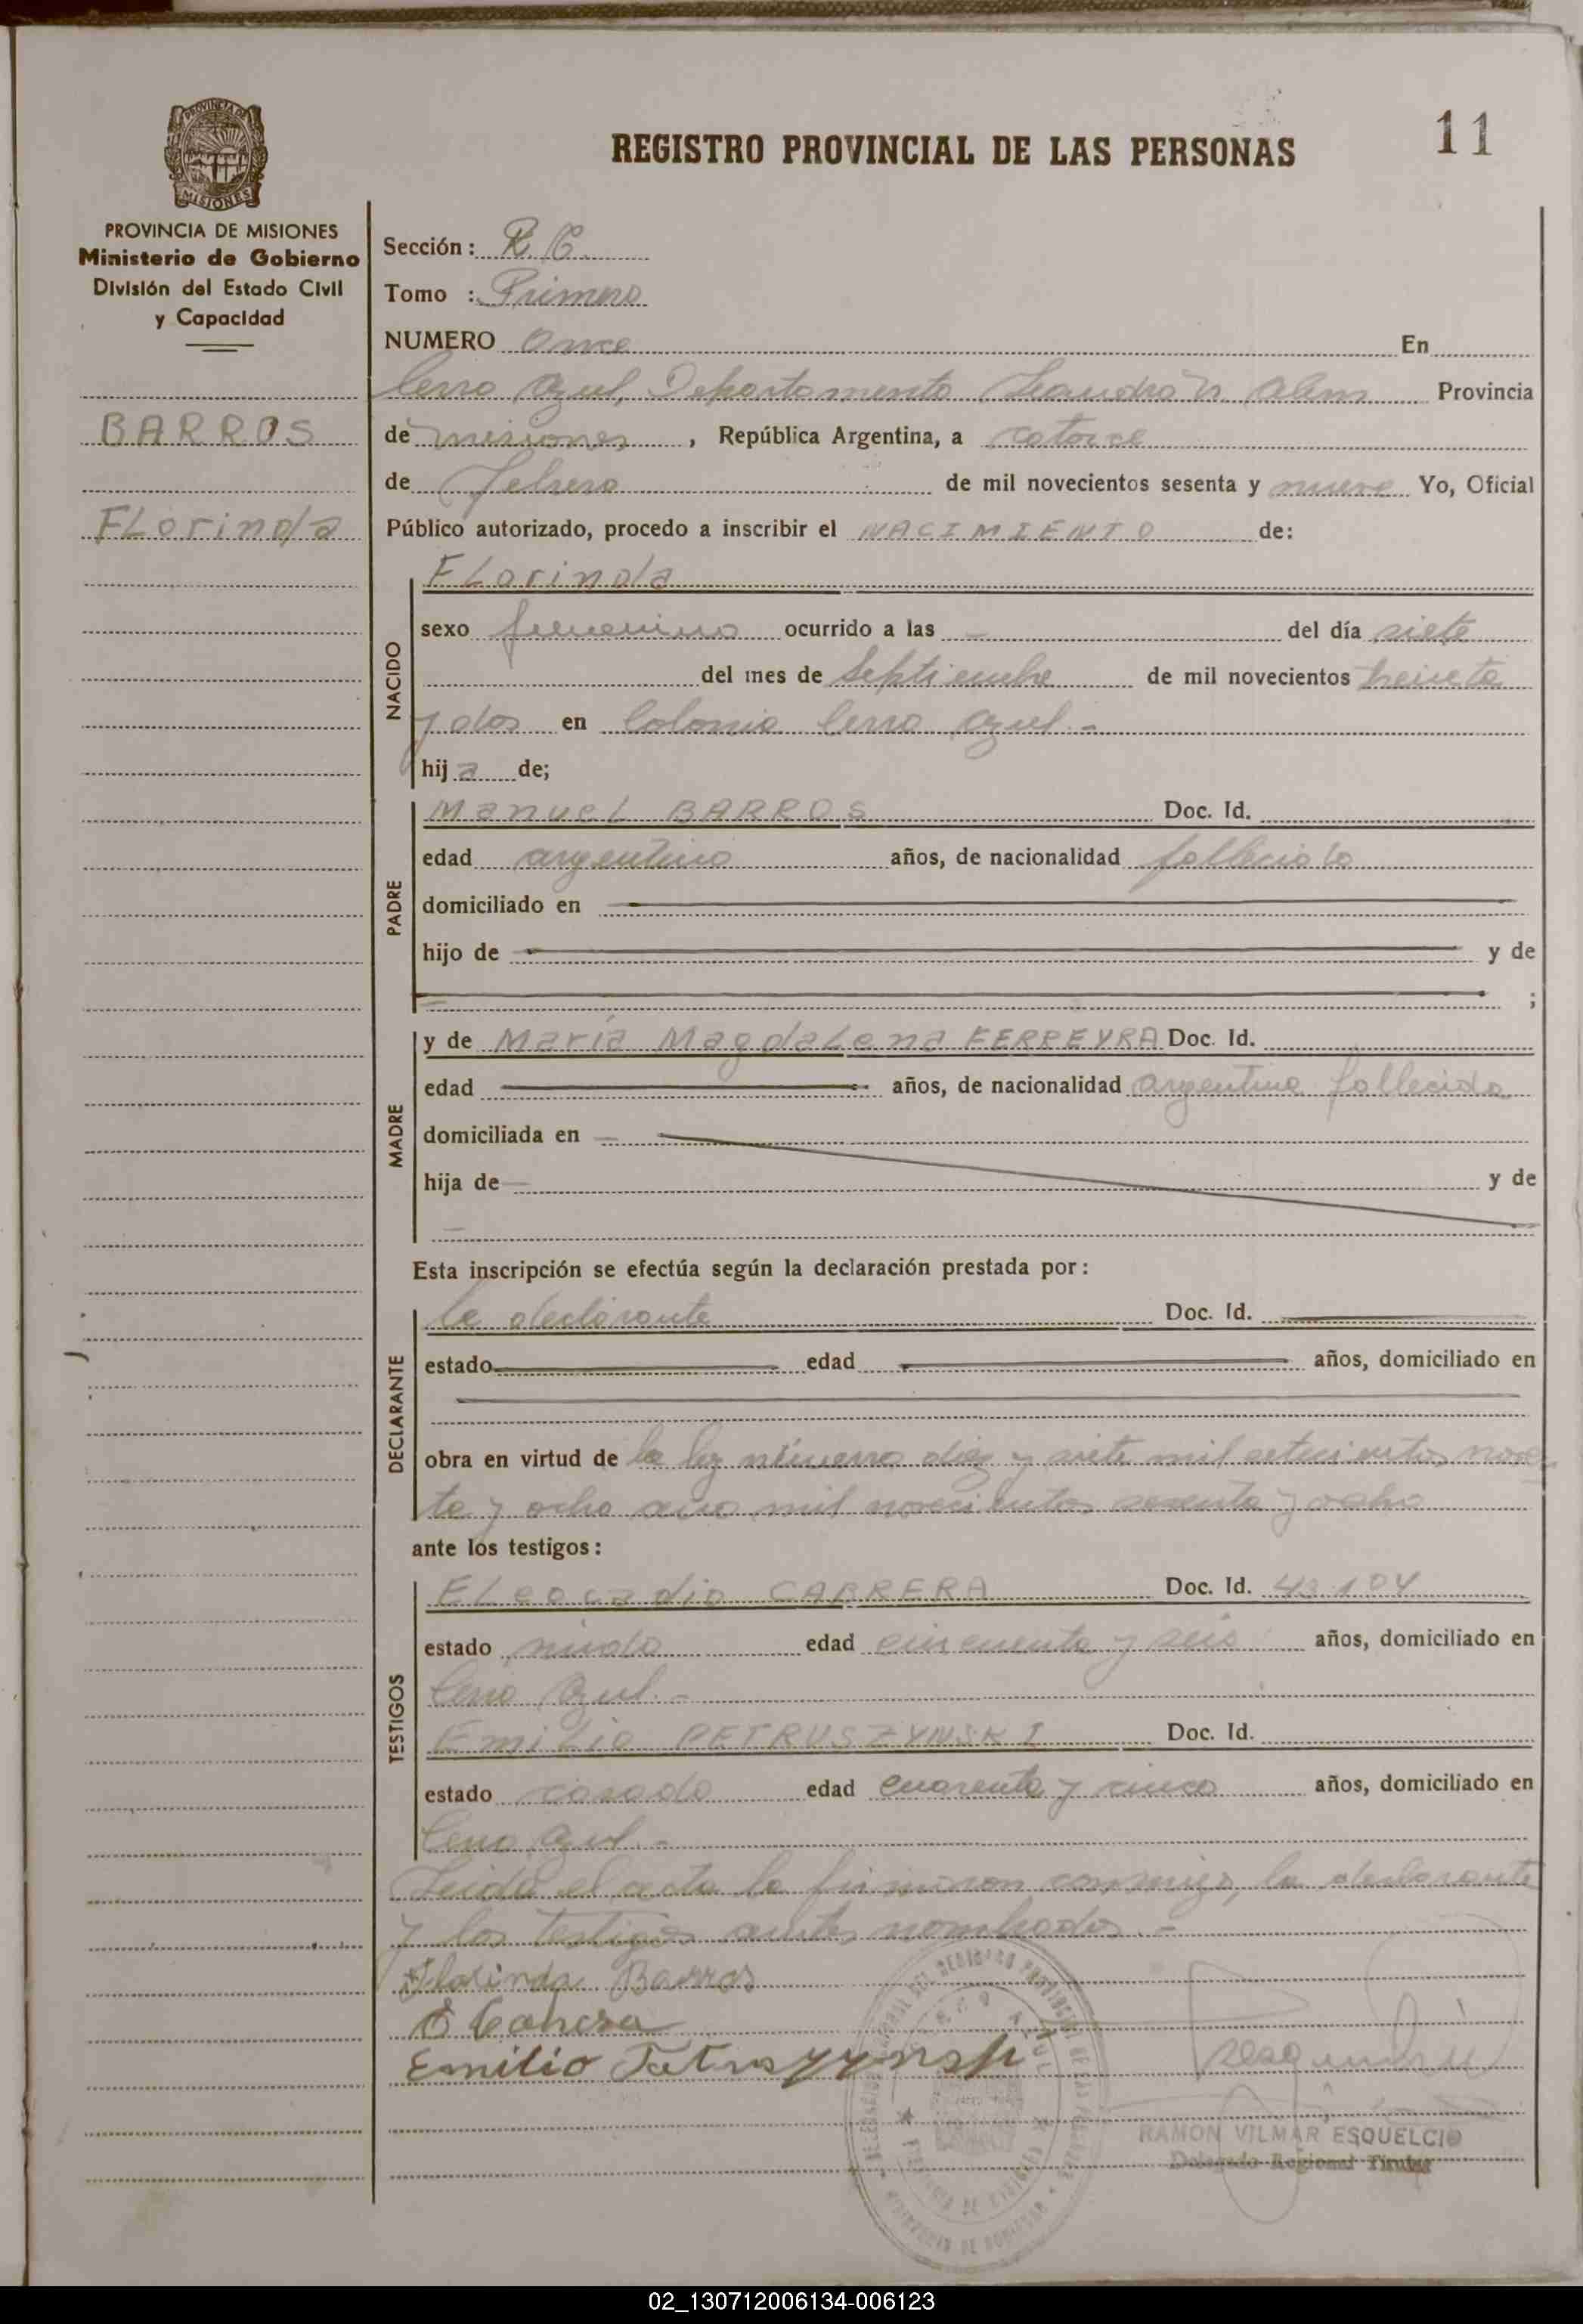 REGISTRO PROVINCIAL DE LAS PERSONAS
11
PROVINCIA DE MISIONES
Ministerio de Gobierno
División del Estado Civil
y Capacidad
BARROS
Florinda
Sección: R. C.
Tomo : Primero
NUMERO Once En
Cerro Azul, Departamento Leandro N. Alem Provincia
de misiones, República Argentina, a catorce
de Febrero de mil novecientos sesenta y nueve Yo, Oficial
Público autorizado, procedo a inscribir el NACIMIENTO de:
NACIDO
Florinda
sexo femenino ocurrido a las - del día siete
del mes de Septiembre de mil novecientos treinta
y dos en Colonia Cerro Azul.-
hija de;
PADRE
Manuel BARROS Doc. Id.
edad argentino años, de nacionalidad fallecido
domiciliado en
hijo de y de
;
MADRE
y de María Magdalena FERREYRA Doc. Id.
edad años, de nacionalidad argentina fallecida
domiciliada en
hija de y de
Esta inscripción se efectúa según la declaración prestada por:
DECLARANTE
la declarante Doc. Id.
estado edad años, domiciliado en
obra en virtud de la ley número diez y siete mil setecientos noven
ta y ocho año mil novecientos sesenta y ocho
ante los testigos:
TESTIGOS
Eleocadio CABRERA Doc. Id. 43.104
estado viudo edad cincuenta y seis años, domiciliado en
Cerro Azul.-
Emilio PETRUSZYNSKI Doc. Id.
estado casado edad cuarenta y cinco años, domiciliado en
Cerro Azul.-
Leida el acta la firmaron conmigo, la declarante
y los testigos antes nombrados.-
Florinda Barros
E Cabrera
Emilio
RAMON VILMAR ESQUELCIO
Delegado Regional Titular
02_130712006134-006123